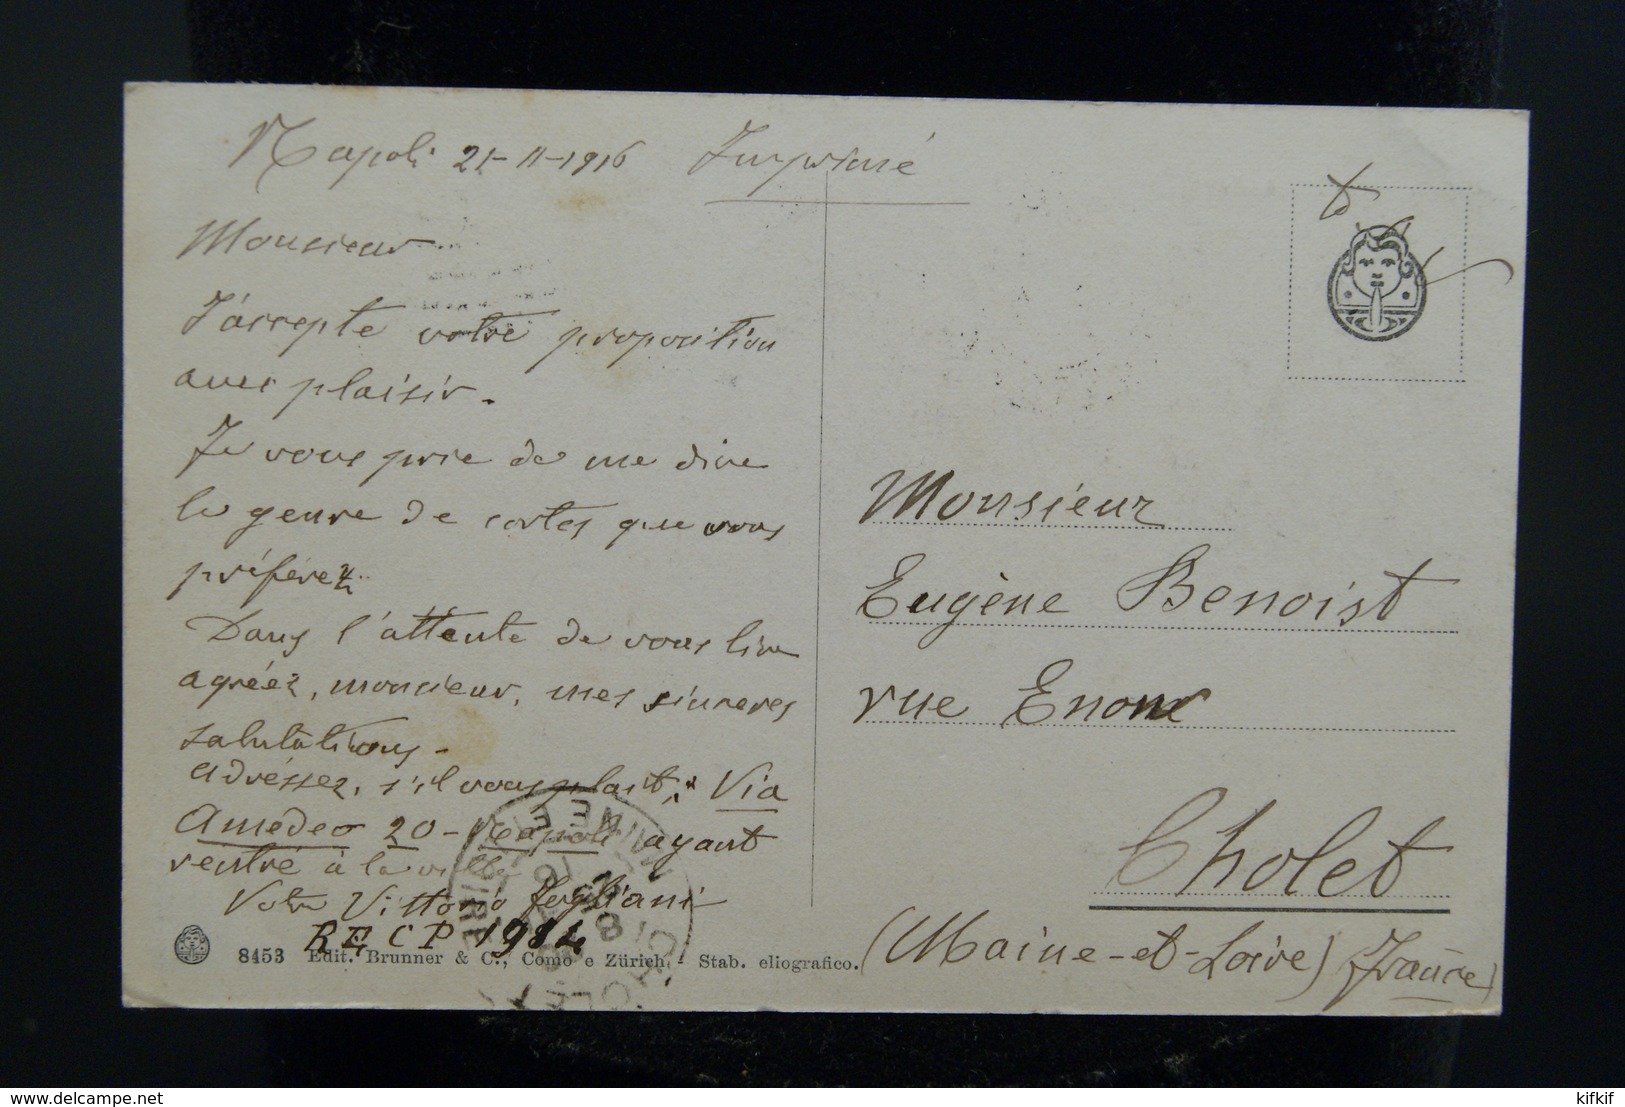 Napoli 21-11-1916 Imprimé
Monsieur
J'accepte votre proposition
avec plaisir.
Je vous prie de me dire
le genre de cartes que vous
préférez.
Dans l'attente de vous lire
agréez, monsieur, mes sinceres
salutations.
adréssez, s'il vous plait: Via
Amedeo 20 - Napoli ayant
rentré à la ville
Votre Vittorio
RECP 1984
8453 Edit. Brunner & C., Como e Zürich. - Stab. eliografico.
Monsieur
Eugène Benoist
rue
Cholet
(Maine-et-Loire) France)
CHOLET
MAINE ET LOIRE
kifkif
www.delcampe.net